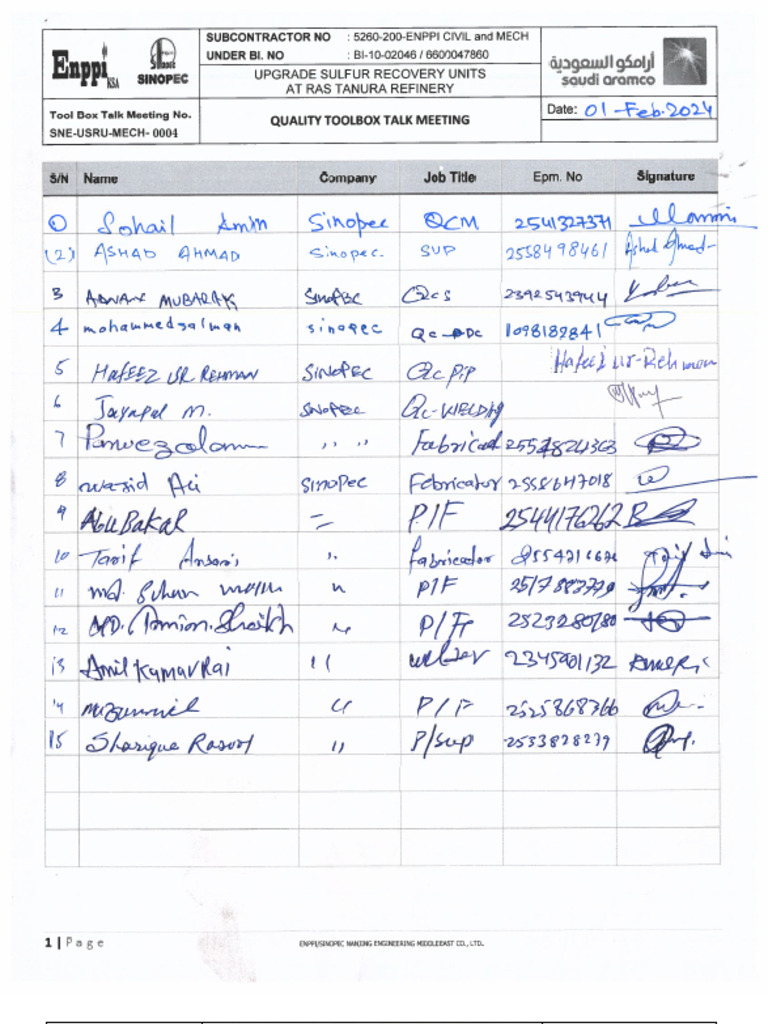 Enppi KSA
SINOPEC
SUBCONTRACTOR NO : 5260-200-ENPPI CIVIL and MECH
UNDER BI. NO : BI-10-02046 / 6600047860
UPGRADE SULFUR RECOVERY UNITS
AT RAS TANURA REFINERY
أرامكو السعودية
saudi aramco
Tool Box Talk Meeting No.
SNE-USRU-MECH- 0004
QUALITY TOOLBOX TALK MEETING
Date: 01-Feb-2024
S/N Name Company Job Title Epm. No Signature
1 Sohail Amin Sinopec QCM 2541327371
(2) ASHAD AHMAD Sinopec. SUP 2558498461 Ashad Ahmad
3 ADNAN MUBARAK SINOPEC QCS 2392543944
4 mohammedsalman sinopec QC-DC 1098182841
5 HAFEEZ UR REHMAN SINOPEC QC PIP Hafeez ur-Rehman
6 Jayapal M. SINOPEC QC-WELDING
7 Parwezalam ,, ,, Fabricat
8 wasid Ali SINOPEC Febricator 2558647018
9 AbuBakar = P/F 2544176262
10 Tarif Ansari ,, fabricator
11 md. " P/F 2517883779
12 MD. Shaikh " P/F 2523280780
13 Amil Kumar Rai " welder 2345901132
14 " P/F 2525868366
15 Sharique Rasool " P/sup 2533828279
1 | Page
ENPPI/SINOPEC NANJING ENGINEERING MIDDLEEAST CO., LTD.